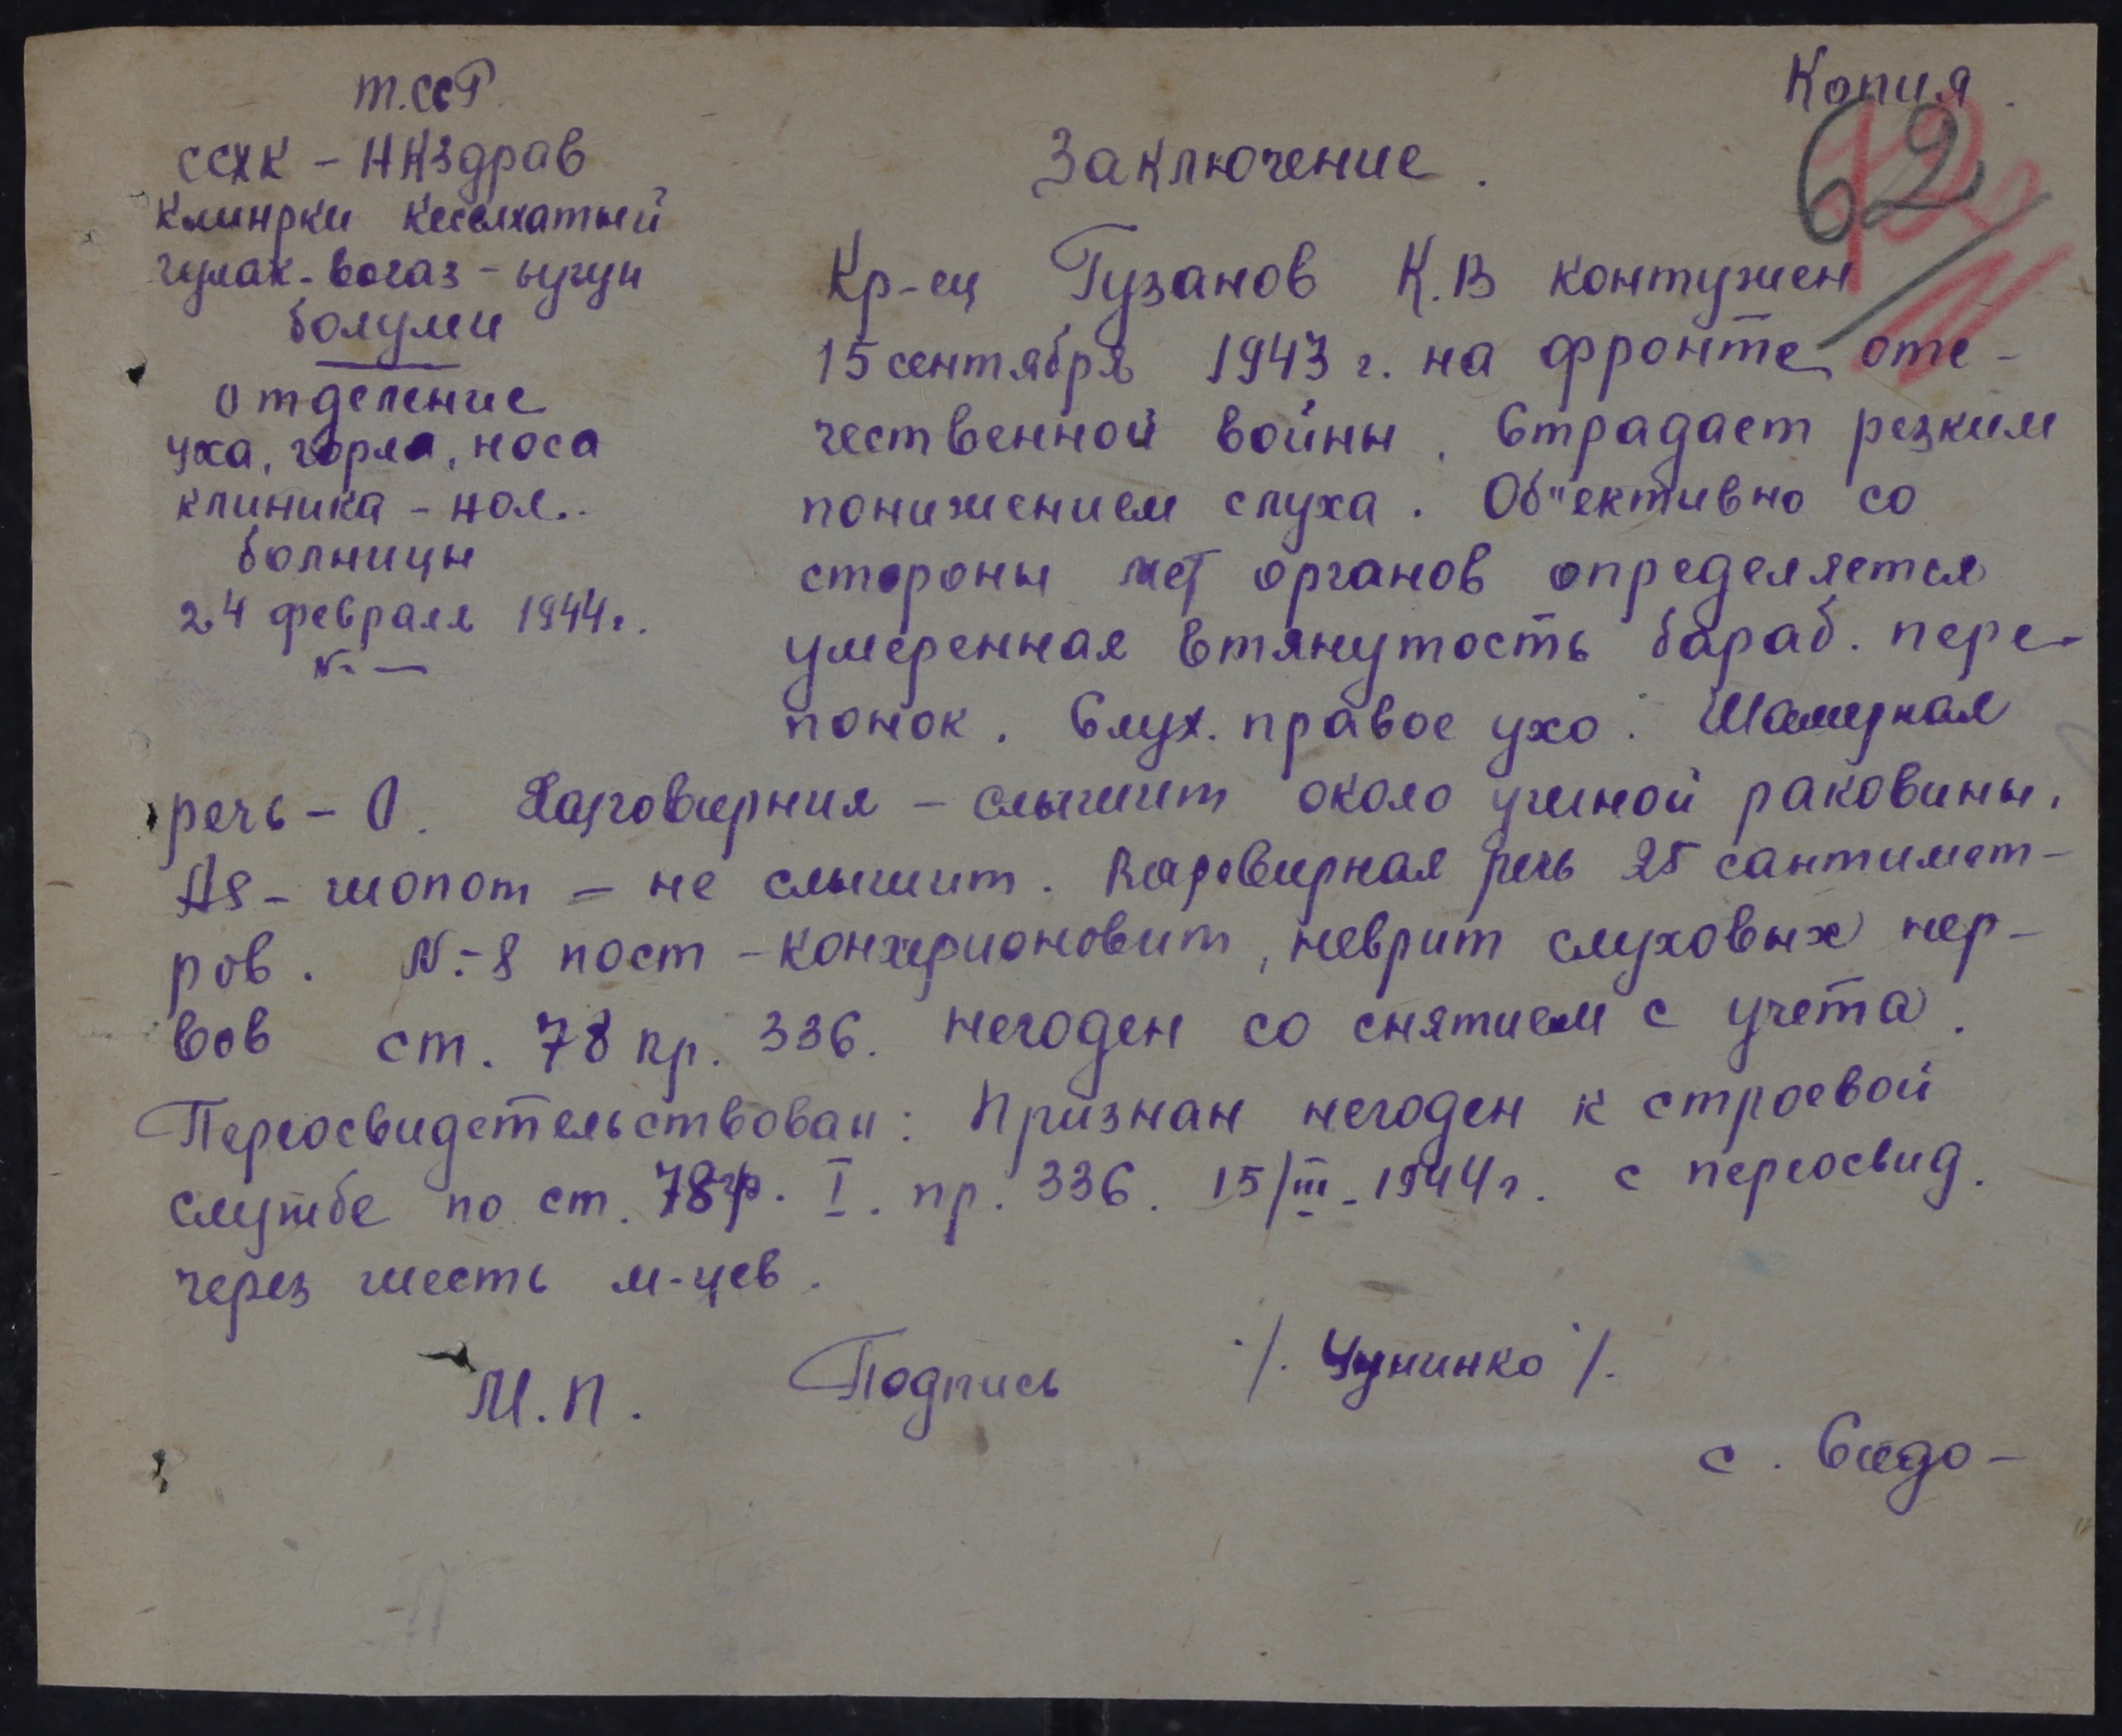 Копия.
62
т.ссР.
ссхк - НКЗдрав
Клинрки кеселхатный
гулак-богаз-ыугун
болуми
отделение
уха, горла, носа
клиника - нол..
болницы
24 февраля 1944 г.
N: —
Заключение.
Кр-ец Гузанов К.В контужен
15 сентября 1943 г. на фронте оте-
чественной войны. Страдает резким
понижением слуха. Об"ективно со
стороны органов определяется
умеренная втянутость бараб. пере-
понок. Слух. правое ухо: Шамерная
речь - 0. Разговирния - слышит около ушной раковины.
АS - шопот - не слышит. Разговирная речь 25 сантимет-
ров. N:-8 пост - неврит слуховых нер-
вов ст. 78 пр. 336. Негоден со снятием с учета.
Переосвидетельствован: Признан негоден к строевой
службе по ст. 78 гр. I. пр. 336. 15/III-1944 г. с переосвид.
через шесть м-цев.
М.П. Подпись /. Чунинко /.
с. Сидо-